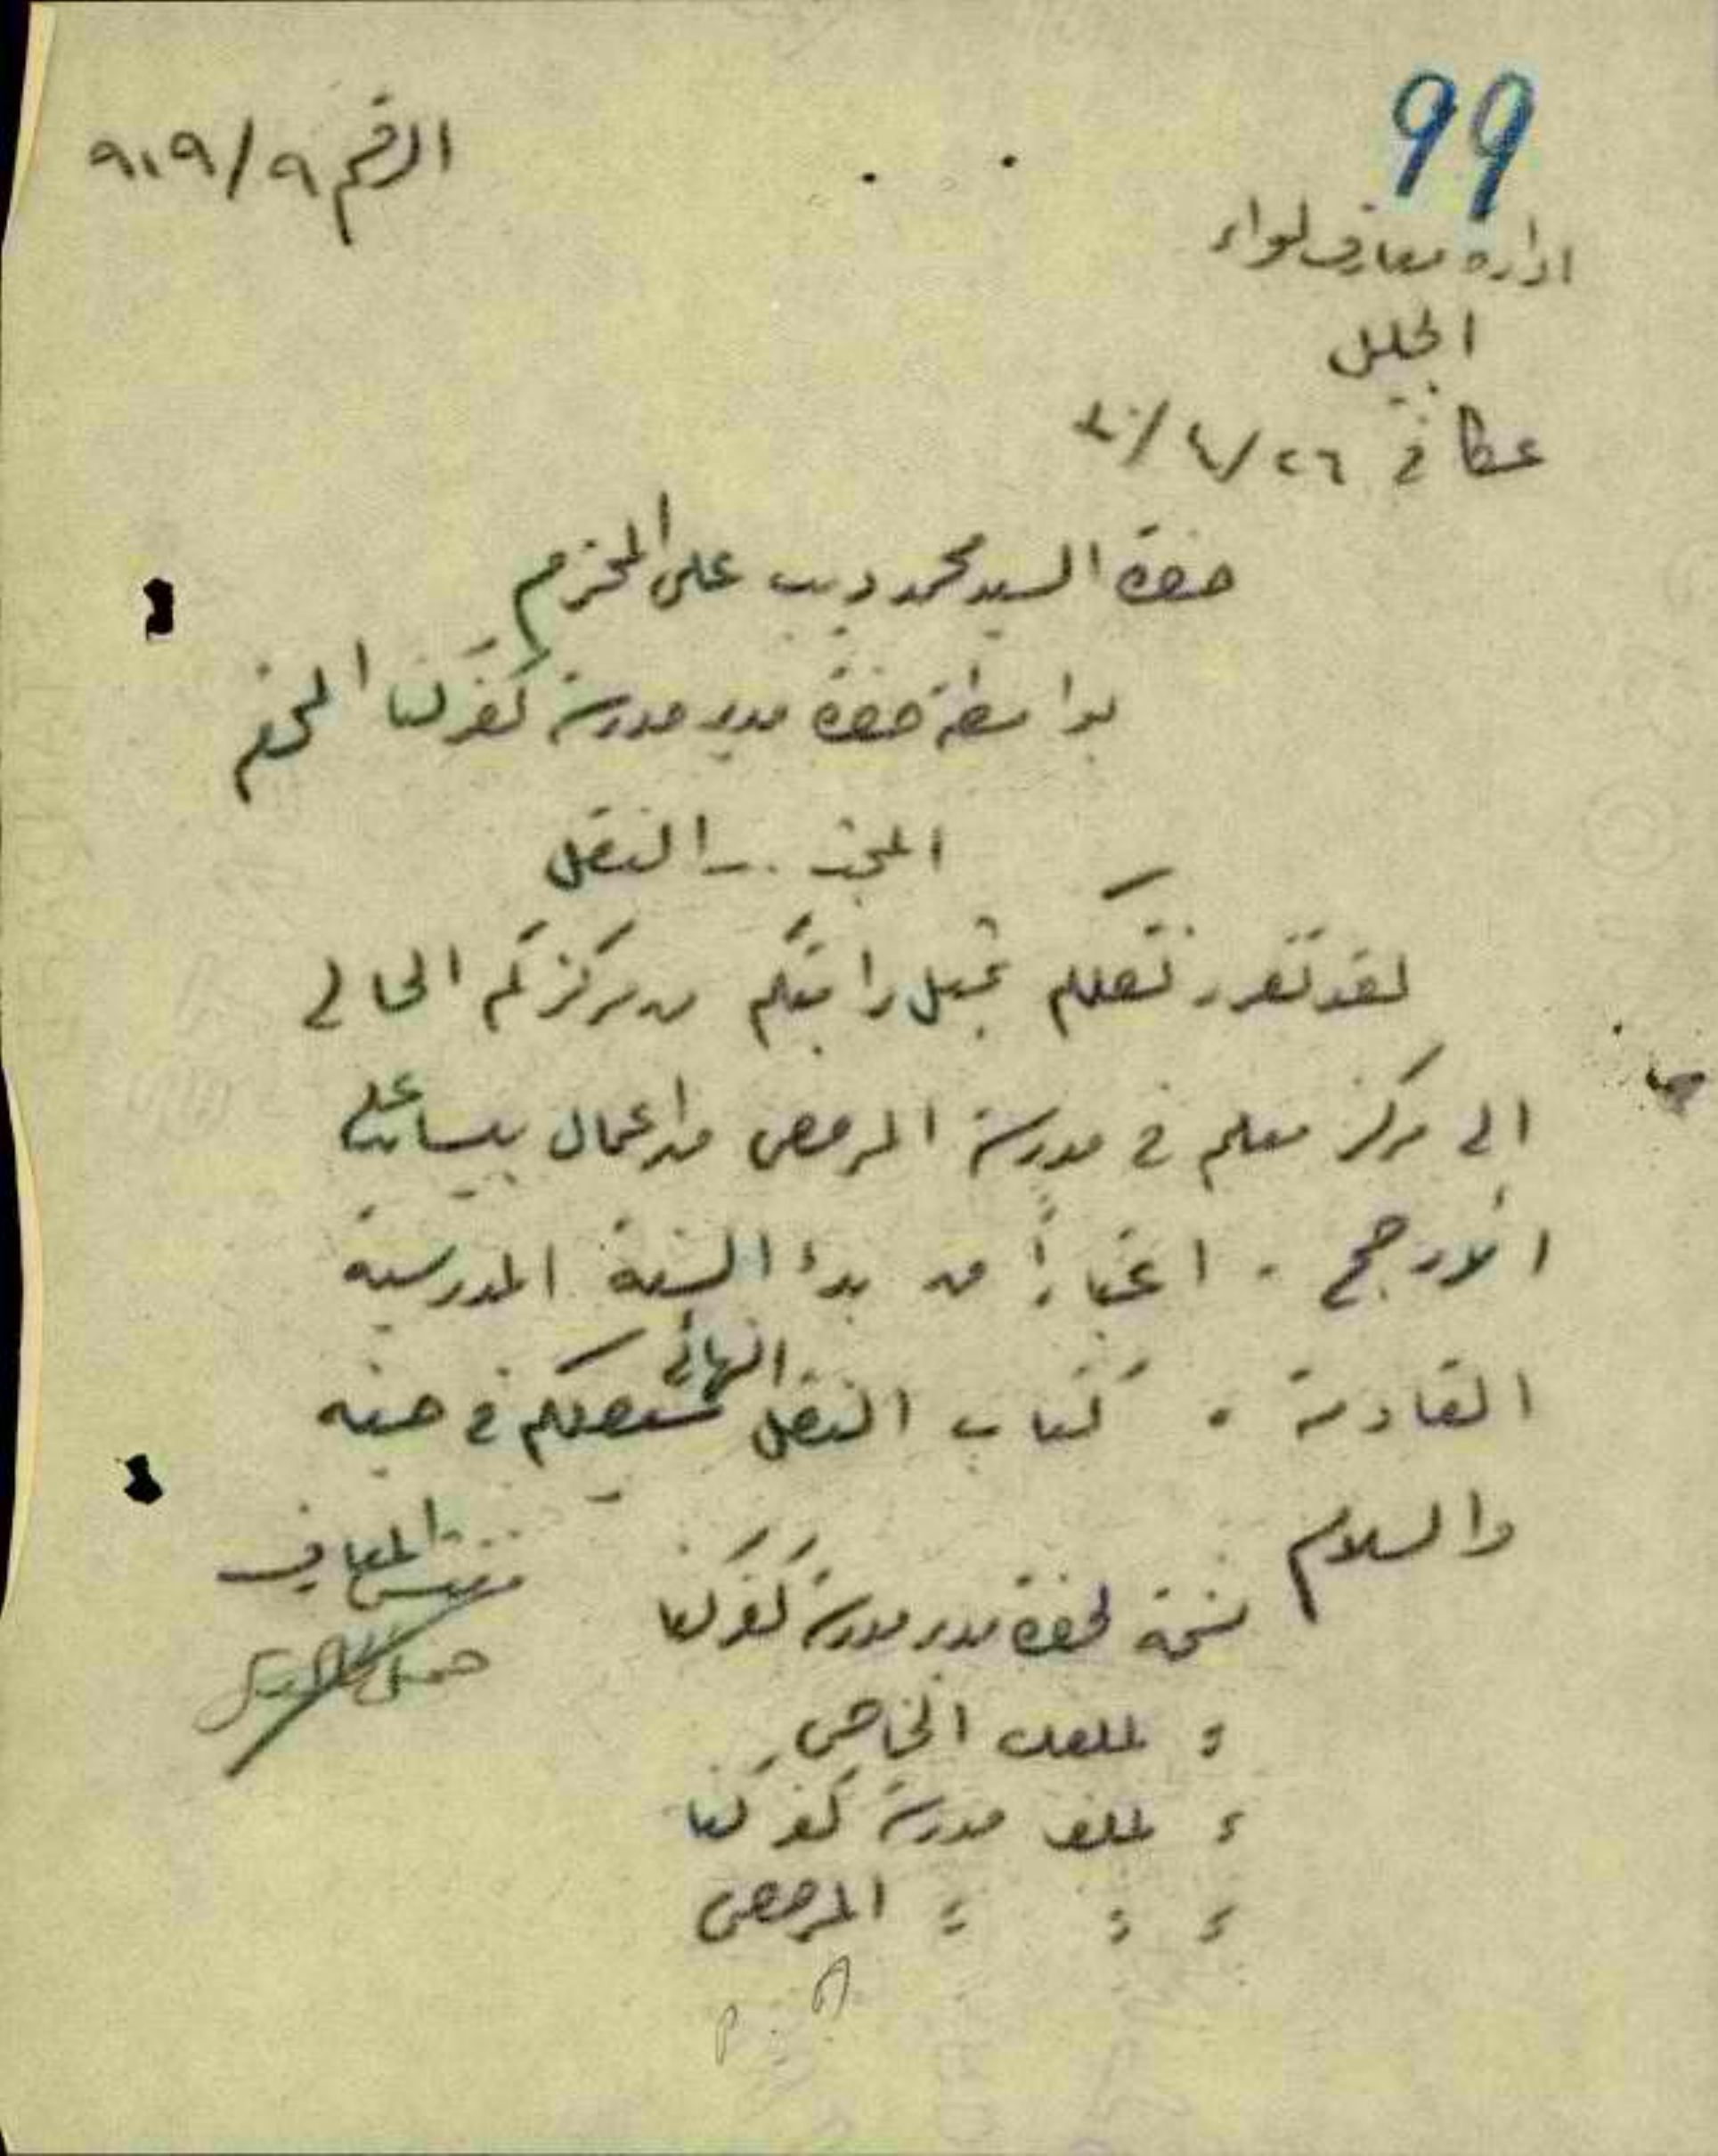 99
الرقم ٩/٩١٩
اداره معارف لواء
الجليل
عكا في ٢٦/٤/٤٠
حضرة السيد محمد ديب علي المحترم
بواسطة حضرة مدير مدرسة كفركنا المحترم
المبحث .- النقل
لقد تقرر نقلكم بمثل راتبكم من مركزكم الحالي
الى مركز معلم في مدرسة المرصص من اعمال بيسان على
الارجح . اعتباراً من بدء السنة المدرسية
القادمة . كتاب النقل النهائي سيصلكم في حينه
والسلام
مفتش المعارف
نسخة لحضرة مدير مدرسة كفركنا
" للملف الخاص
" لملف مدرسة كفركنا
" " " المرصص